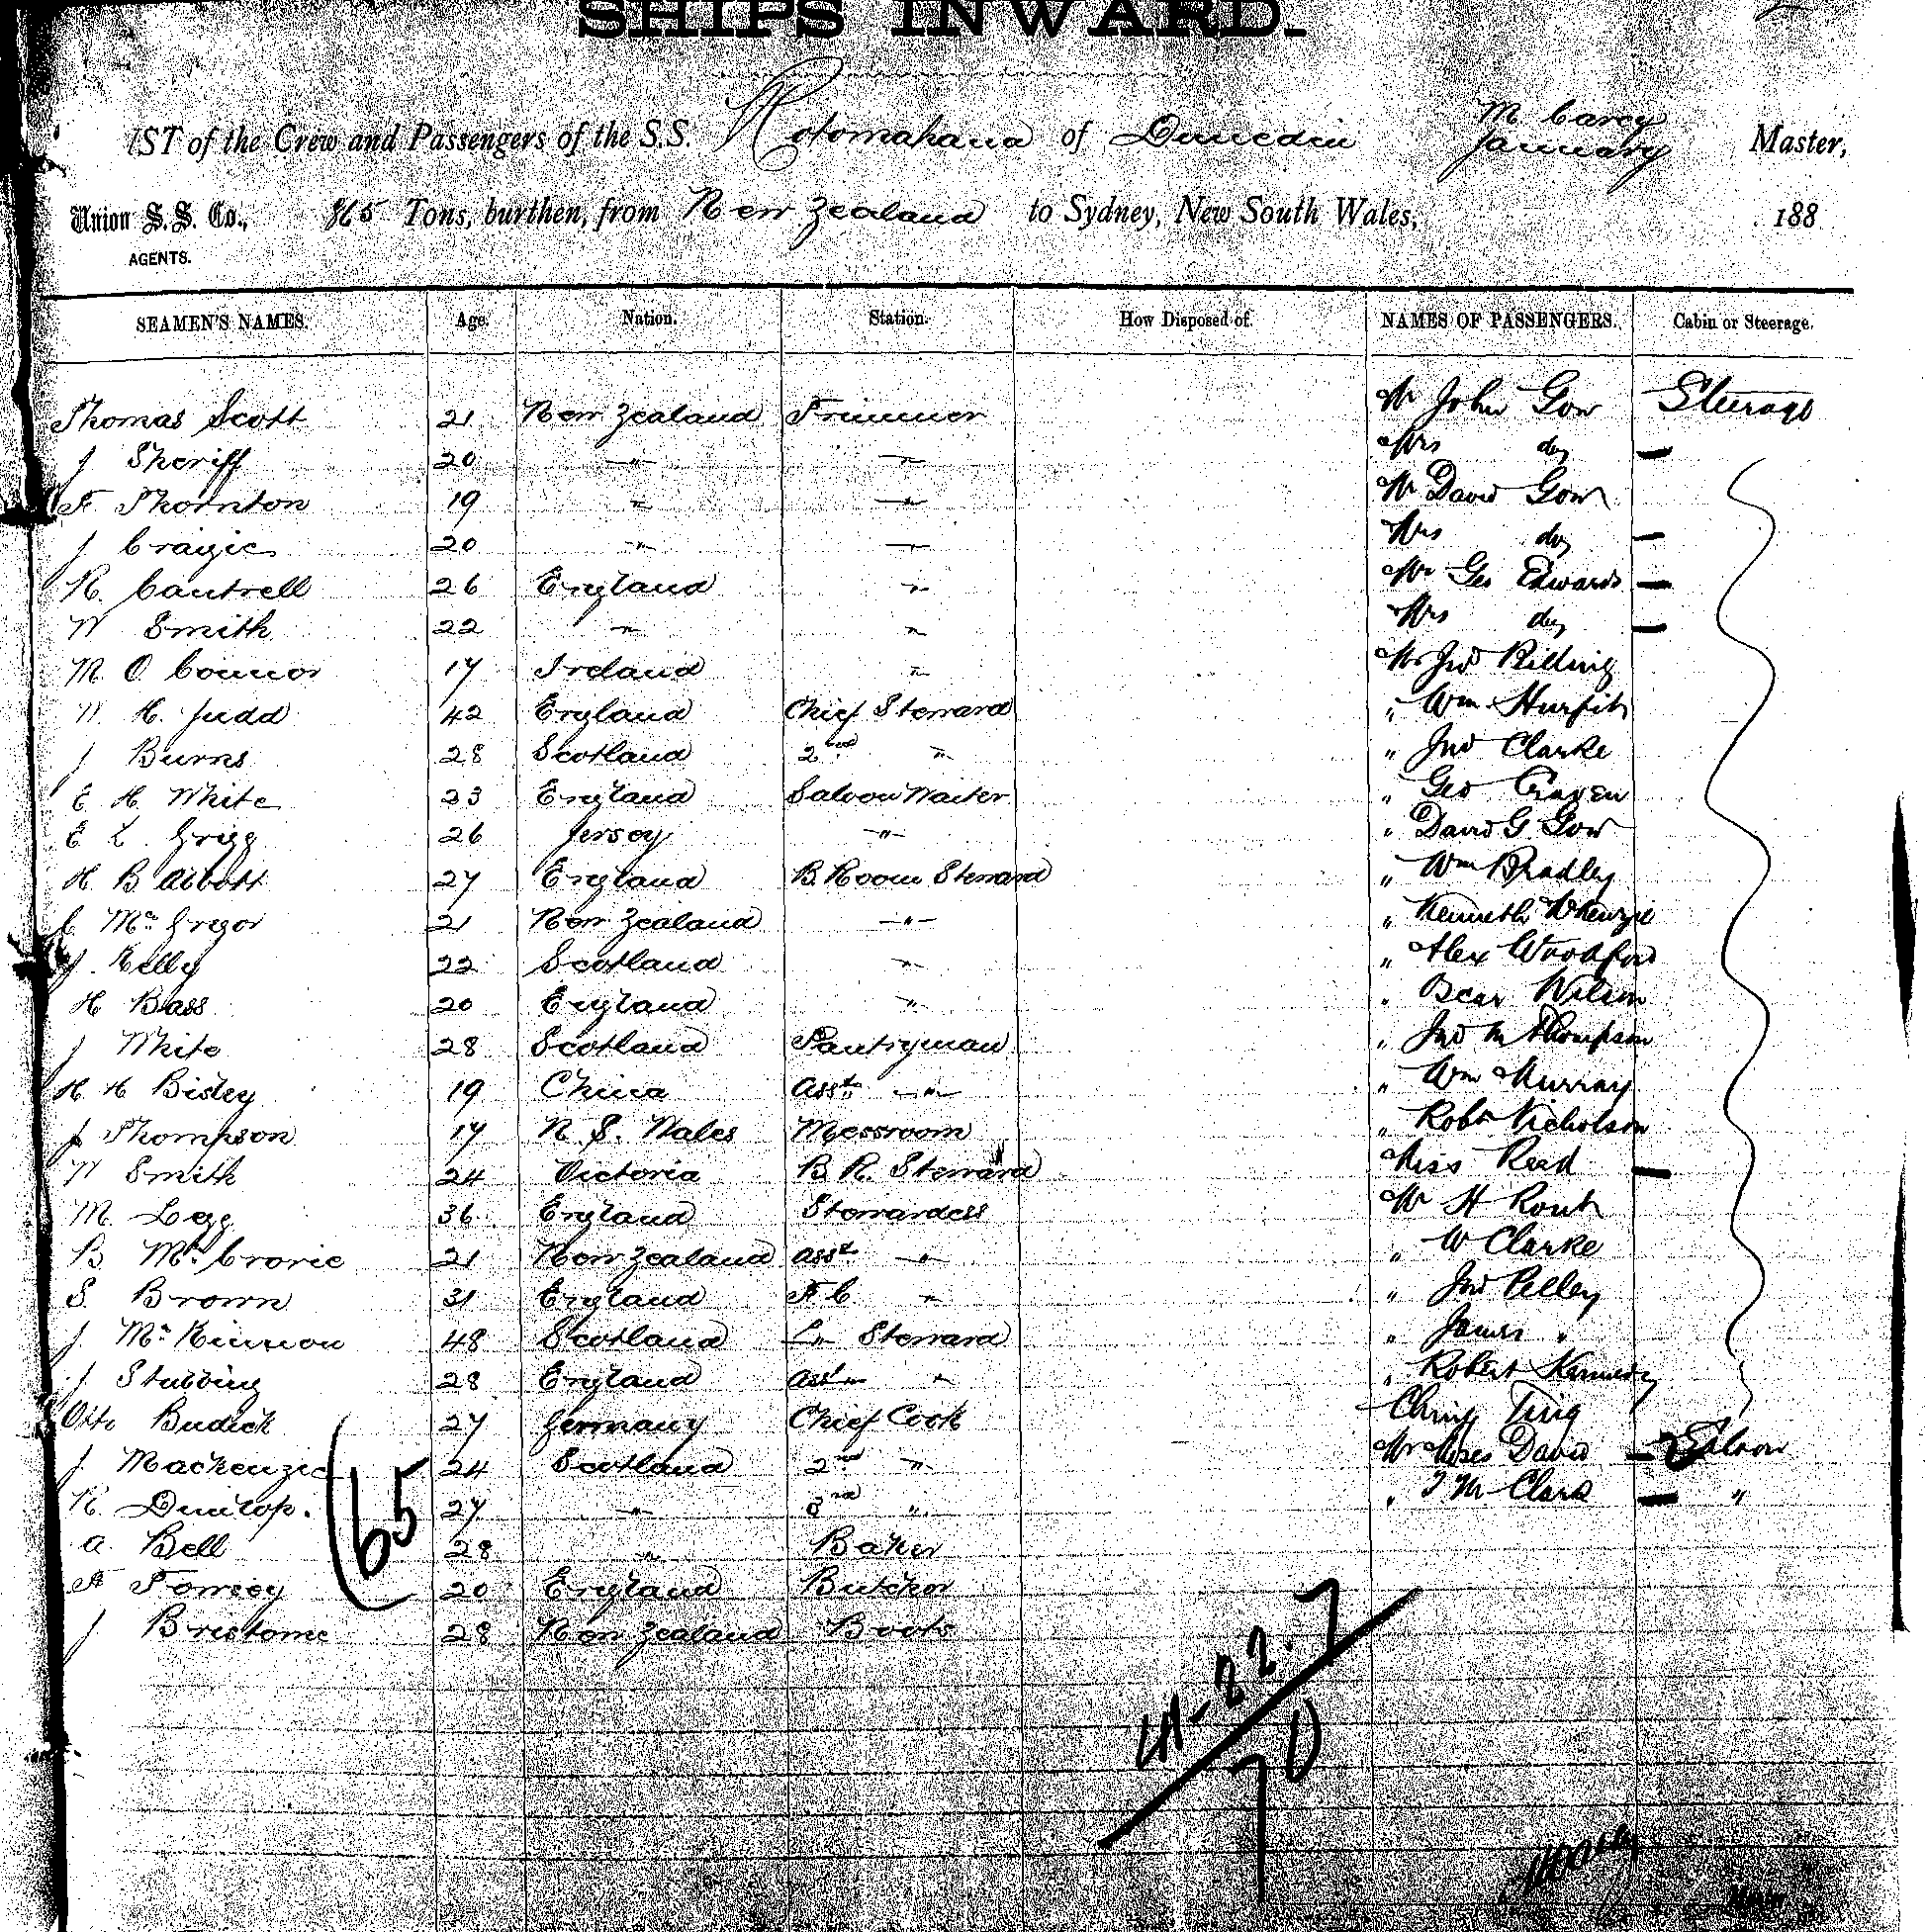 SHIPS INWARD.
IST of the Crew and Passengers of the S.S. Rotomahana of Dunedin M Carey Master,
January
Union S.S. Co., 865 Tons, burthen, from New Zealand to Sydney, New South Wales, 188
AGENTS.
SEAMEN'S NAMES. Age. Nation. Station. How Disposed of. NAMES OF PASSENGERS. Cabin or Steerage.
Thomas Scott 21 New Zealand Trimmer Mr John Gow Steerage
J Sheriff 20 " " Mrs do —
F Thornton 19 " " Mr David Gow
J Craigie 20 " " Mrs do —
R. Cantrell 26 England " Mr Geo Edwards —
W Smith 22 " " Mrs do —
M. O Connor 17 Ireland " Mr Jno Billing
W. H. Judd 42 England Chief Steward " Wm
J Burns 28 Scotland 2nd " " Jno Clarke
E H. White 23 England Saloon Waiter " Geo Craven
E L. Grigg 26 Jersey " " David G. Gow
H B Abbott 27 England B. Room Steward " Wm Bradley
C McGregor 21 New Zealand " " Kenneth McKenzie
J. Kelly 22 Scotland " " Alex Woodford
H Bass 20 England " " Oscar Wilson
J White 28 Scotland Pantryman " Jno M Thompson
H. H Bisley 19 China Asst " " Wm Murray
J Thompson 17 N. S. Wales Messroom " Robt Nicholson
W Smith 24 Victoria B. R. Steward Miss Reid —
M. Legg 36 England Stewardess Mr H Routh
B McCrorie 21 New Zealand Asst " " W Clarke
S. Brown 31 England F C. " " Jno Pelley
J McKinnon 48 Scotland Steward " James "
J. Stubbing 28 England Asst " " Robert Kennedy
Otto Budick 27 Germany Chief Cook Ting
J. Mackenzie 24 Scotland 2nd " Mr Moses David — 2 Saloon
R. Dunlop. 27 " 3rd " " T M Clark — "
A Bell 28 " Baker
(65
F Tomsey 20 England Butcher
J 28 New Zealand Boots
41-22.7
70